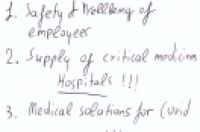 1. Safety & Wellbeing of
employees
2. Supply of critical medicines
Hospitals !!!
3. Medical solutions for Covid